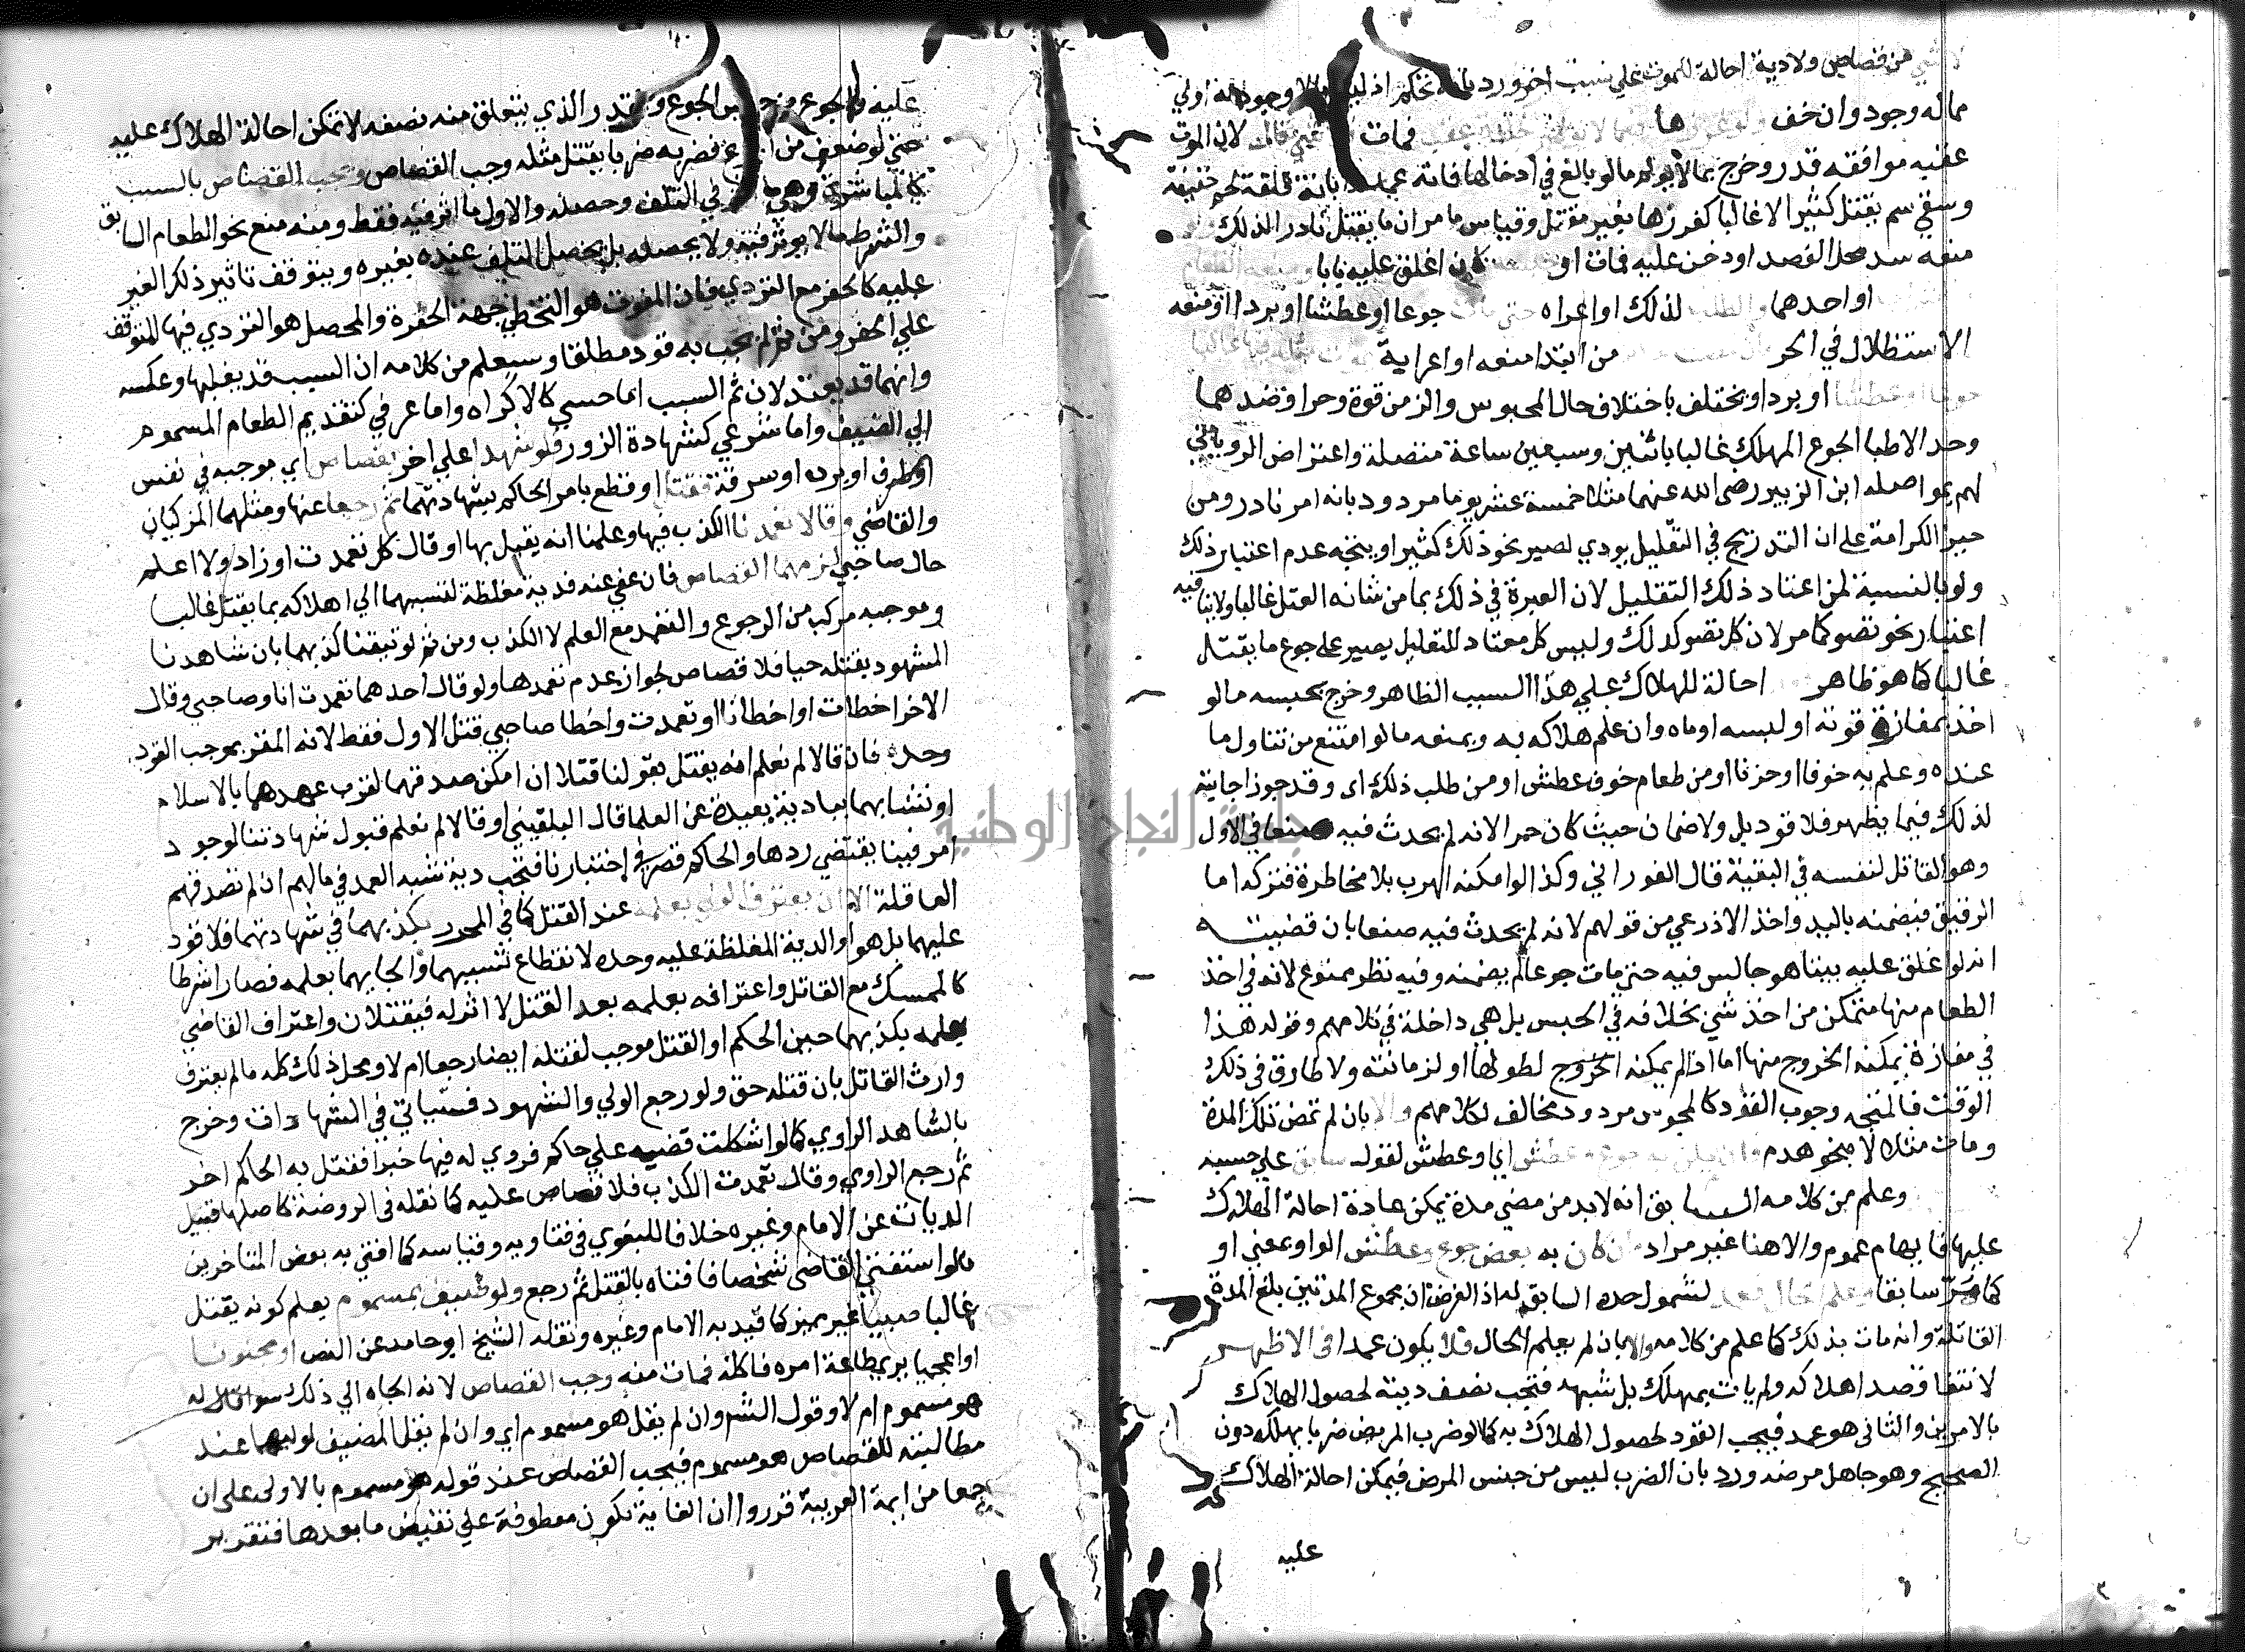 من قصاص ولادية احالة للموت علي سبب اخر ورد بانه تحكم اذ ليس اولي
ماله وجود وان خف ها فمات لان الموت
عقبه موافقه قدر وخرج بما لا يولم مالو بالغ في ادخالها فانه عمد
وسقي سم يقتل كثيرا لا غالبا كغرزها بغير مقتل وقياس ما مر ان ما يقتل نادرا لذلك
منفه سد محل الفصد او دخن عليه فمات او كان اغلق عليه بابا
او احدهما والطلب لذلك او اعراه حتي مات جوعا او عطشا او بردا او منعه
الاستظلال في الحر من ابتدا منعه او اعرايه
جوعا او عطشا او بردا ويختلف باختلاف حال المحبوس والزمن قوة وحرا وضدهما
وحد الاطبا الجوع المهلك غالبا باثنين وسبعين ساعة متصلة واعتراض الروياني
لهم بمواصله ابن الزبير رضي الله عنهما مثلا خمسة عشر يوما مردود بانه امر نادر ومن
حيز الكرامة علي ان التدريج في التقليل يودي لصبر نحو ذلك كثيرا ويتجه عدم اعتبار ذلك
ولو بالنسبة لمن اعتاد ذلك التقليل لان العبرة في ذلك بما من شانه القتل غالبا ولا ينافيه
اعتبار نحو نضو كما مر لان كل نضو كذلك وليس كل معتاد للتقليل يصبر علي جوع ما يقتل
غالبا كما هو ظاهر احالة للهلاك علي هذا السبب الظاهر وخرج بحبسه مالو
اخذ بمفازة قوته او لبسه او ماه وان علم هلاكه به وبمنعه مالو امتنع من تناول ما
عنده وعلم به خوفا او حزنا او من طعام خوف عطش او من طلب ذلك اي وقد جوز اجابته
لذلك فيما يظهر فلا قود بل ولا ضمان حيث كان حرا لانه لم يحدث فيه صنعا في الاول
وهو القاتل لنفسه في البقية قال الفوراني وكذا لو امكنه الهرب بلا مخاطرة فتركه اما
الرقيق فيضمنه باليد واخذ الاذرعي من قولهم لانه لم يحدث فيه صنعا بان قضيته
انه لو اغلق عليه بيتا هو جالس فيه حتي مات جوعا لم يضمنه وفيه نظر ممنوع لانه في اخذ
الطعام منها متمكن من اخذ شي بخلافه في الحبس بل هي داخلة في كلامهم وقوله هذا
في مفازة يمكنه الخروج منها اما اذا لم يمكنه الخروج لطولها او لزمانته ولا طارق في ذلك
الوقت فالمتجه وجوب القود كالمحبوس مردود مخالف لكلامهم والا بان لم تمض تلك المدة
ومات مثلا لا بنحو هدم فان لم يكن به جوع وعطش اي او عطش لقوله سابق علي حبسه
وعلم من كلامه السابق انه لا بد من مضي مدة يمكن عادة احالة الهلاك
عليها فايهام عموم والا هنا غير مراد وان كان به بعض جوع وعطش الواو بمعني او
كما مر سابقا وعلم الحال فعمد لشمول حده السابق له اذ الفرض ان مجموع المدتين بلغ المدة
القاتلة وانه مات بذلك كما علم من كلامه والا بان لم يعلم الحال فلا يكون عمدا في الاظهر
لانتفا قصد اهلاكه ولم يات بمهلك بل شبهه فتجب نصف ديته لحصول الهلاك
بالامرين والثاني هو عمد فيجب القود لحصول الهلاك به كما لو ضرب المريض ضربا يهلكه دون
الصحيح وهو جاهل مرضه ورد بان الضرب ليس من جنس المرض فيمكن احالة الهلاك
عليه
عليه والجوع من جنس الجوع والقدر الذي يتعلق منه نصفه لا تمكن احالة الهلاك عليه
حتي لو ضعف من الجوع فضربه ضربا يقتل مثله وجب القصاص ويجب القصاص بالسبب
كالمباشرة وهي في التلف وحصله والاول ما اثر فيه فقط ومنه منع نحو الطعام السابق
والشرط مالا يوثر فيه ولا يحصله بل يحصل التلف عنده بغيره ويتوقف تاثير ذلك الغير
عليه كالحفر مع التردي فان المفوت هو التخطي جهة الحفرة والمحصل هو التردي فيها المتوقف
علي الحفر ومن ثم لم يجب به قود مطلقا وسيعلم من كلامه ان السبب قد يغلبها وعكسه
وانهما قد يعتدلان ثم السبب اما حسي كالاكراه واما عرفي كتقديم الطعام المسموم
الي الضيف واما شرعي كشهادة الزور فلو شهدا علي اخر بقصاص اي موجبه في نفس
او طرف او بردة او سرقة فقتل او قطع بامر الحاكم بشهادتهما ثم رجعا عنها ومثلهما المزكيان
والقاضي وقالا تعمدنا الكذب فيها وعلمنا انه يقتل بها او قال كل تعمدت او زاد ولا اعلم
حال صاحبي لزمهما القصاص فان عفي عنه فدية مغلظة لتسببهما الي اهلاكه بما يقتل غالبا
وموجبه مركب من الرجوع والتعمد مع العلم لا الكذب ومن ثم لو تيقنا كذبهما بان شاهدنا
المشهود بقتله حيا فلا قصاص لجواز عدم تعمدها ولو قال احدهما تعمدت انا وصاحبي وقال
الاخر اخطات او اخطانا او تعمدت واخطا صاحبي قتل الاول فقط لانه المقر بموجب القود
وحده فان قالا لم نعلم انه يقتل بقولنا قتلا ان امكن صدقهما لقرب عهدهما بالاسلام
او نشئا بهما ببادية بعيدة عن العلما قال البلقيني او قالا لم نعلم قبول شهادتنا لوجود
امر فينا يقتضي ردها والحاكم قصر في اختبارنا فتجب دية شبه العمد في مالهم ان لم تصدقهم
العاقلة الا ان يعترف الولي بعلمه عند القتل كما في المحرر بكذبهما في شهادتهما فلا قود
عليهما بل هو او الدية المغلظة عليه وحده لانقطاع تسببهما والجايهما بعلمه فصارا شرطا
كالممسك مع القاتل واعترافه بعلمه بعد القتل لا اثر له فيقتلان واعتراف القاضي
بعلمه بكذبهما حين الحكم او القتل موجب لقتله ايضا رجعا ام لا ومحل ذلك كله مالم يعترف
وارث القاتل بان قتله حق ولو رجع الولي والشهود فسياتي في الشهادات وخرج
بالشاهد الراوي كما لو اشكلت قضيه علي حاكم فروي له فيها خبرا فقتل به الحاكم اخر
ثم رجع الراوي وقال تعمدت الكذب فلا قصاص عليه كما نقله في الروضة كاصلها قبيل
الديات عن الامام وغيره خلافا للبغوي في فتاويه وقياسه كما افتي به بعض المتاخرين
مالو استفتي القاضي شخصا فافتاه بالقتل ثم رجع ولو ضيف بمسموم يعلم كونه يقتل
غالبا صبيا غير مميز كما قيد به الامام وغيره ونقله الشيخ ابو حامد عن النص او مجنونا
او اعجميا يري طاعة امره فاكله فمات منه وجب القصاص لانه الجاه الي ذلك سوا قال له
هو مسموم ام لا وقول الشم وان لم يقل هو مسموم اي وان لم يقل المضيف لوليهما عند
مطالبته للقصاص هو مسموم فيجب القصاص عند قوله هو مسموم بالاولي علي ان
جمعا من ايمة العربية قرروا ان الغاية تكون معطوفة علي نقيض ما بعدها فتقرير
جامعة النجاح الوطنية